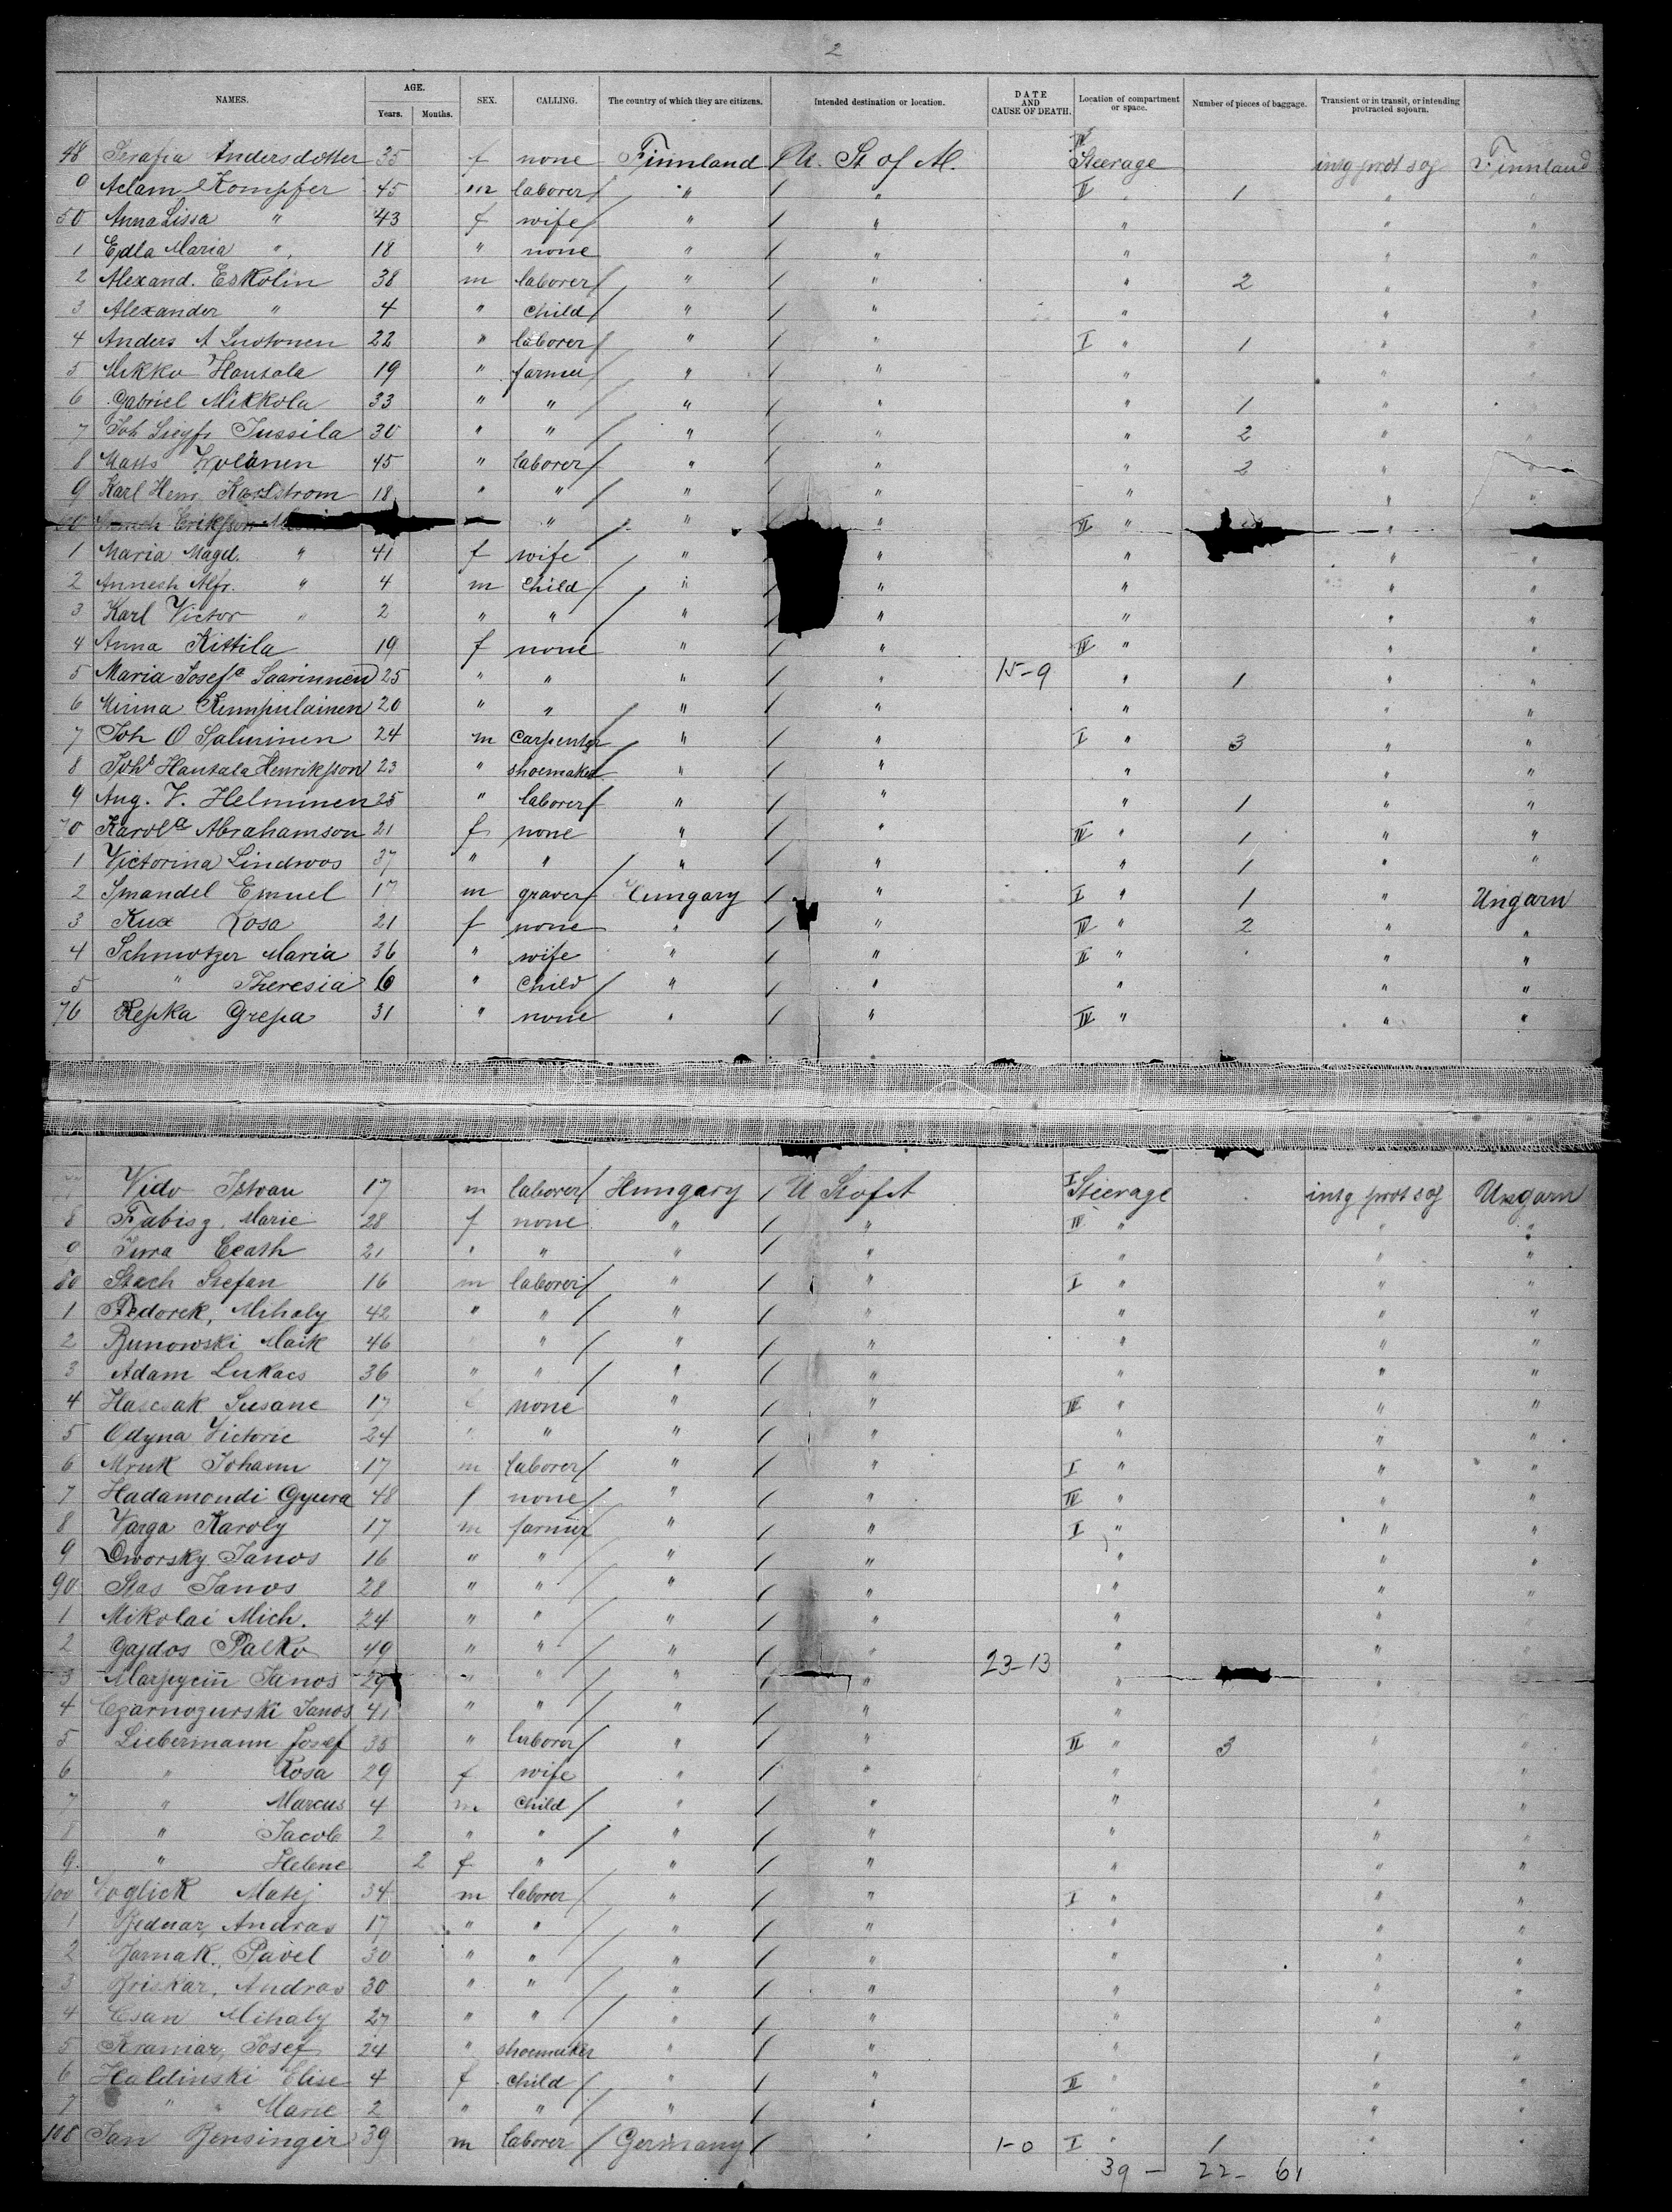 2
NAMES. AGE. Years. Months. SEX. CALLING. The country of which they are citizens. Intended destination or location. DATE AND CAUSE OF DEATH. Location of compartment or space. Number of pieces of baggage. Transient or in transit, or intending protracted sojourn.
48 Serafia Andersdotter 35 f none Finnland U. St of A. IV Steerage intg prot soj Finnland
9 Adam Kompfer 45 m laborer " " II " 1 " "
50 Anna Lissa " 43 f wife " " " " "
1 Edla Maria " 18 " none " " " " "
2 Alexand. Eskolin 38 m laborer " " " 2 " "
3 Alexander " 4 " child " " " " "
4 Anders A Luotonen 22 " laborer " " I " 1 " "
5 Mikko Hautala 19 " farmer " " " " "
6 Gabriel Mikkola 33 " " " " " 1 " "
7 Joh Siegfr Jussila 30 " " " " " 2 " "
8 Matts Wolanen 45 " laborer " " " 2 " "
9 Karl Henr Karlstrom 18 " " " " " " "
60 Eriksson " " " II " "
1 Maria Magd. " 41 f wife " " " " "
2 Annesh Alfr. " 4 m child " " " " "
3 Karl Victor " 2 " " " " " " "
4 Anna Kittila 19 f none " " IV " " "
5 Maria Josefa Saarinnen 25 " " " " 15-9 " 1 " "
6 Miina Kumpulainen 20 " " " " " " "
7 Joh O Salminen 24 m carpenter " " I " 3 " "
8 Johs Hautala Henriksson 23 " shoemaker " " " " "
9 Aug. V. Helminen 25 " laborer " " " 1 " "
70 Karola Abrahamson 21 f none " " IV " 1 " "
1 Victorina Lindroos 37 " " " " " 1 " "
2 Smandel Emuel 17 m graver Hungary " I " 1 " Ungarn
3 Kux Rosa 21 f none " " IV " 2 " "
4 Schmotzer Maria 36 " wife " " II " " "
5 " Theresia 6 " child " " " " "
76 Repka Grepa 31 " none " " IV " " "
Vido Istvan 17 m laborer Hungary U St of A I Steerage intg prot soj Ungarn
8 Fabisz, Marie 28 f none " " IV " " "
9 Jurra 21 " " " " " " "
80 Stach Stefan 16 m laborer " " I " " "
1 Fedorek, Mihaly 42 " " " " " " "
2 Bunowski Maik 46 " " " " " " "
3 Adam Lukacs 36 " " " " " " "
4 Hascsak Susane 17 f none " " IV " " "
5 Odyna Victorie 24 " " " " " " "
6 Mruk Johann 17 m laborer " " I " " "
7 Hadamondi Gyura 48 f none " " IV " " "
8 Varga Karoly 17 m farmer " " I " " "
9 Dworsky Janos 16 " " " " " " "
90 Stas Janos 28 " " " " " " "
1 Mikolai Mich. 24 " " " " " " "
2 Gajdos Palko 49 " " " " 23-13 " " "
3 Janos 29 " " " " " " "
4 Czarnogurski Janos 41 " " " " " "
5 Liebermann Josef 35 " laborer " " II " 3 " "
6 " Rosa 29 f wife " " " " "
7 " Marcus 4 m child " " " " "
8 " Jacob 2 " " " " " " "
9 " Helene 2 f " " " " " "
100 Voglick Matej 34 m laborer " " I " " "
1 Bednar, Andras 17 " " " " " " "
2 Jamak, Pavel 30 " " " " " " "
3 Briskar, Andras 30 " " " " " " "
4 Csan Mihaly 27 " " " " " " "
5 Kramar, Josef 24 " shoemaker " " " " "
6 Haldinski Elise 4 f child " " II " " "
7 " " Marie 2 " " " " " " "
108 Jan Bensinger 39 m laborer Germany " 1-0 I " 1 " "
39 - 22 - 61